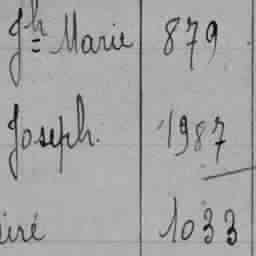 Jh Marie 879
Joseph. 1987
iré 1033